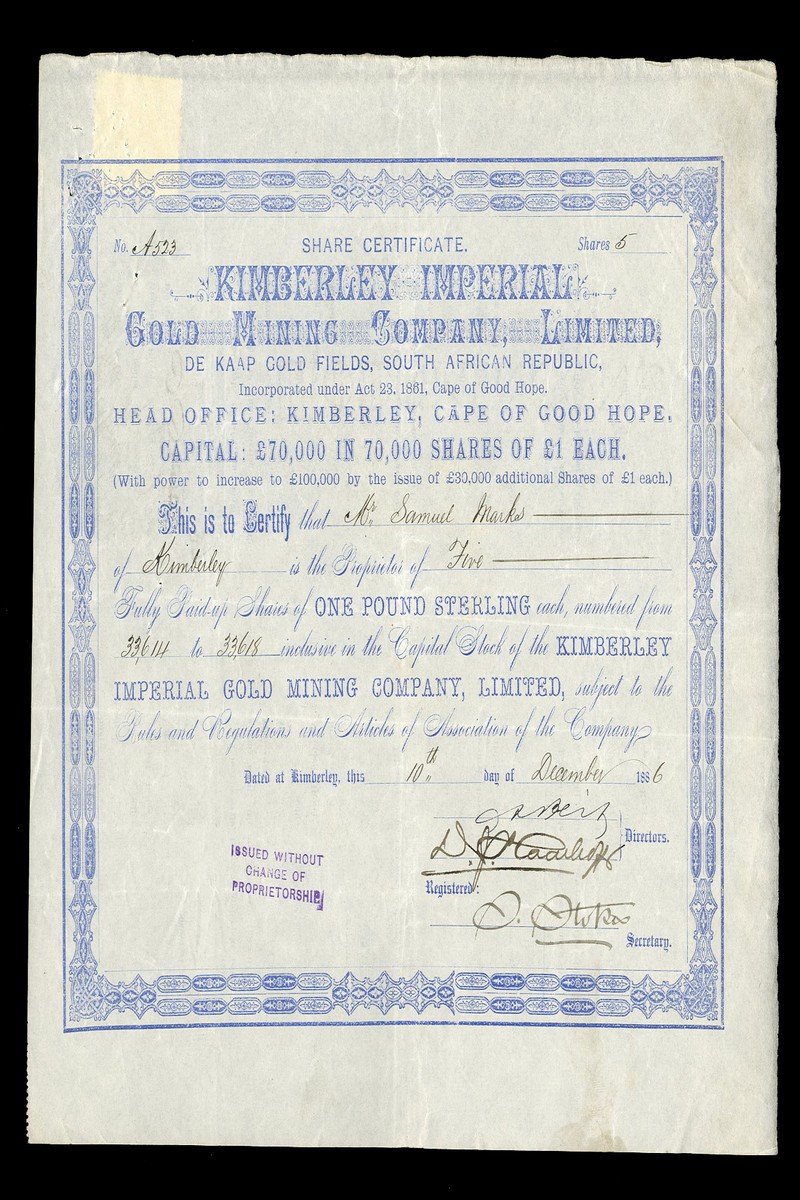 No. A523 SHARE CERTIFICATE. Shares 5
KIMBERLEY IMPERIAL
GOLD MINING COMPANY, LIMITED,
DE KAAP GOLD FIELDS, SOUTH AFRICAN REPUBLIC,
Incorporated under Act 23, 1861, Cape of Good Hope.
HEAD OFFICE: KIMBERLEY, CAPE OF GOOD HOPE.
CAPITAL: £70,000 IN 70,000 SHARES OF £1 EACH.
(With power to increase to £100,000 by the issue of £30,000 additional Shares of £1 each.)
This is to Certify that Mr. Samuel Marks
of Kimberley is the Proprietor of Five
Fully Paid-up Shares of ONE POUND STERLING each, numbered from
33,614 to 33,618 inclusive in the Capital Stock of the KIMBERLEY
IMPERIAL GOLD MINING COMPANY, LIMITED, subject to the
Rules and Regulations and Articles of Association of the Company
Dated at Kimberley, this 10th day of December 1886
Directors.
ISSUED WITHOUT
CHANGE OF
PROPRIETORSHIP
Registered:
Stokes
Secretary.